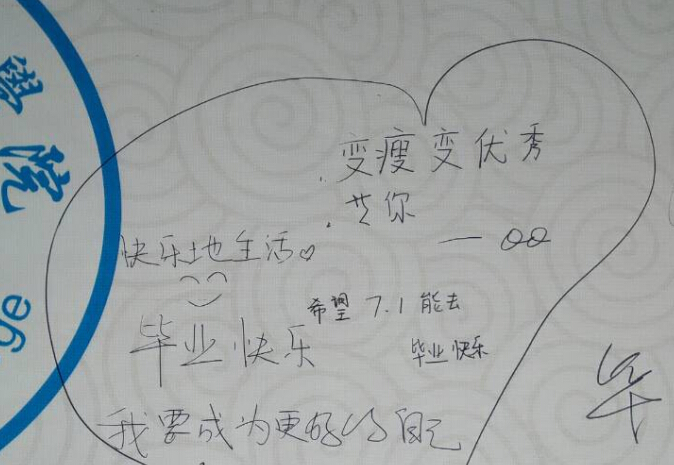 學院
变瘦变优秀
快乐地生活♡
希望7.1能去
毕业快乐
毕业快乐
我要成为更好的自己